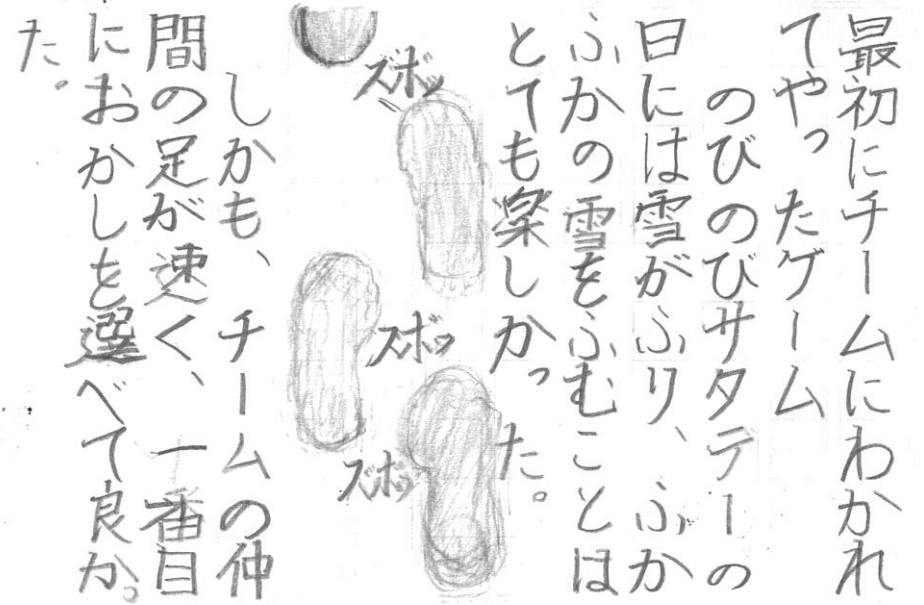 最初にチームにわかれ
てやったゲーム
のびのびサタデーの
日には雪がふり、ふか
ふかの雪をふむことは
とても楽しかった。
ズボッ
ズボッ
ズボッ
しかも、チームの仲
間の足が速く、一番目
におかしを選べて良かっ
た。